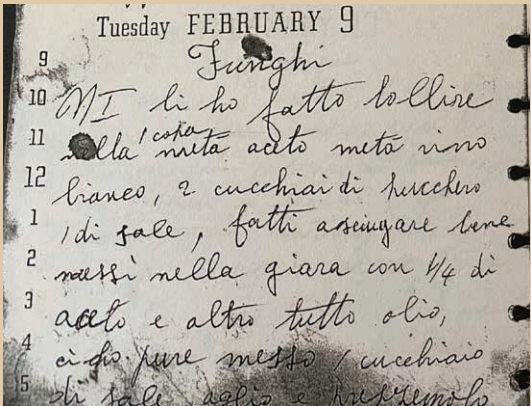 Tuesday FEBRUARY 9
9
Funghi
10 N I li ho fatto bollire
11 nella 1 copa metà aceto metà vino
12 bianco, 2 cucchiai di zucchero
1 1 di sale, fatti asciugare bene
2 messi nella giara con 1/4 di
3 aceto e altro tutto olio,
4 ci ho pure messo 1 cucchiaio
5 di sale aglio e prezzemolo